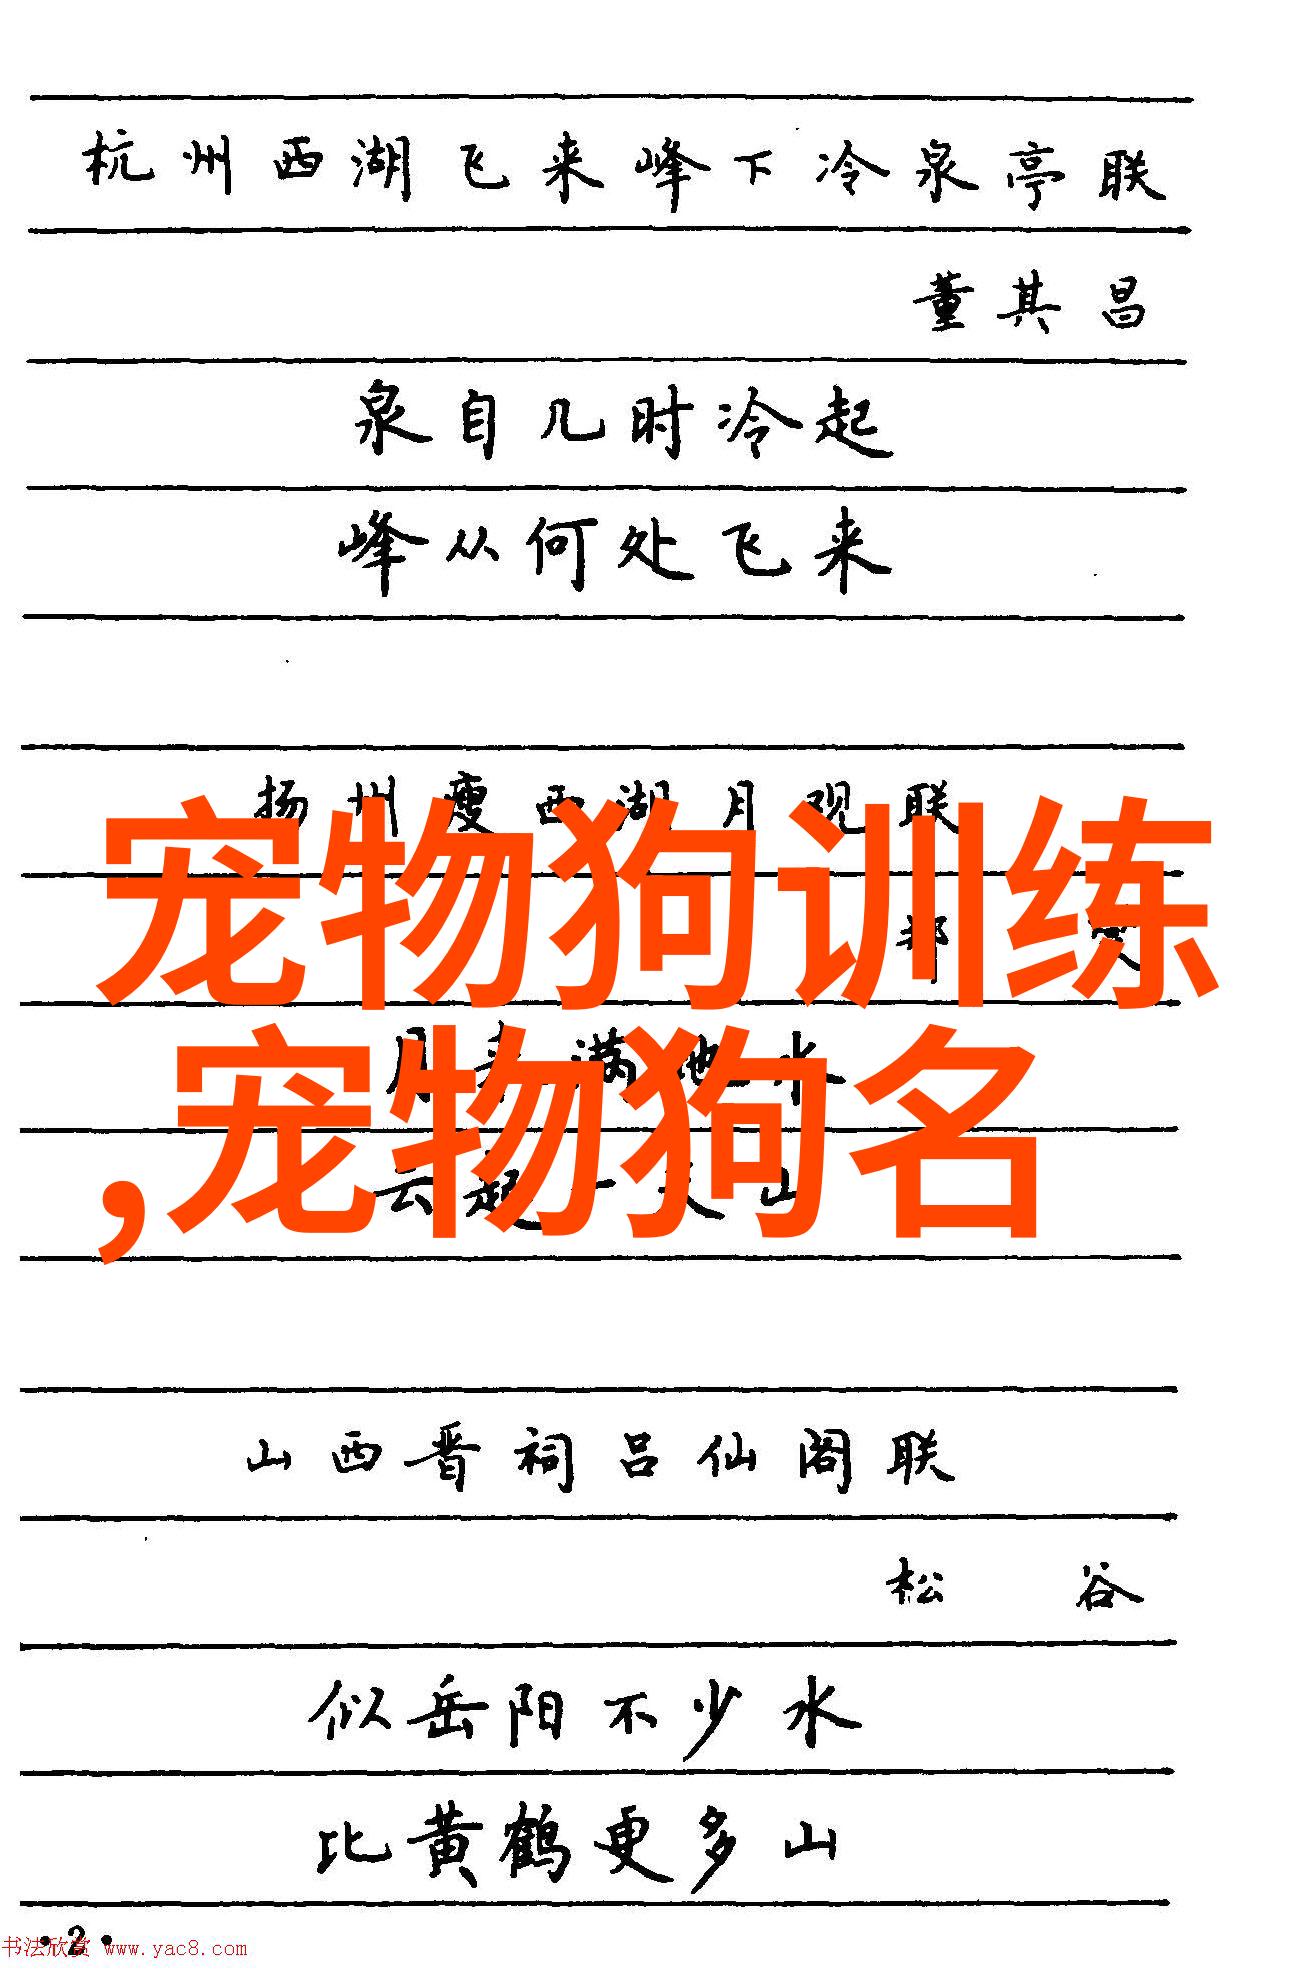 杭州西湖飞来峰下冷泉亭联
董其昌
泉自几时冷起
峰从何处飞来
扬州瘦西湖月观联
宠物狗训练
月来满地水
,宠物狗名
云起一天山
山西晋祠吕仙阁联
松谷
似岳阳不少水
比黄鹤更多山
·2·
书法欣赏 www.yac8.com